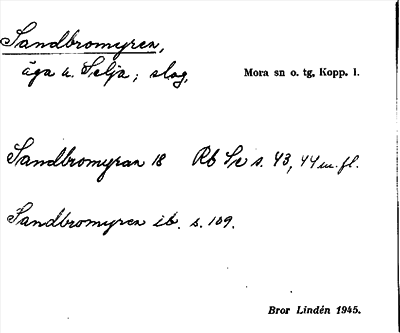 Sandbromyren,
äga u. Selja; slog,
Mora sn o. tg, Kopp. l.
Sandbromyran 18 Rb Se s. 43, 44 m. fl.
Sandbromyren ib. s. 109.
Bror Lindén 1945.